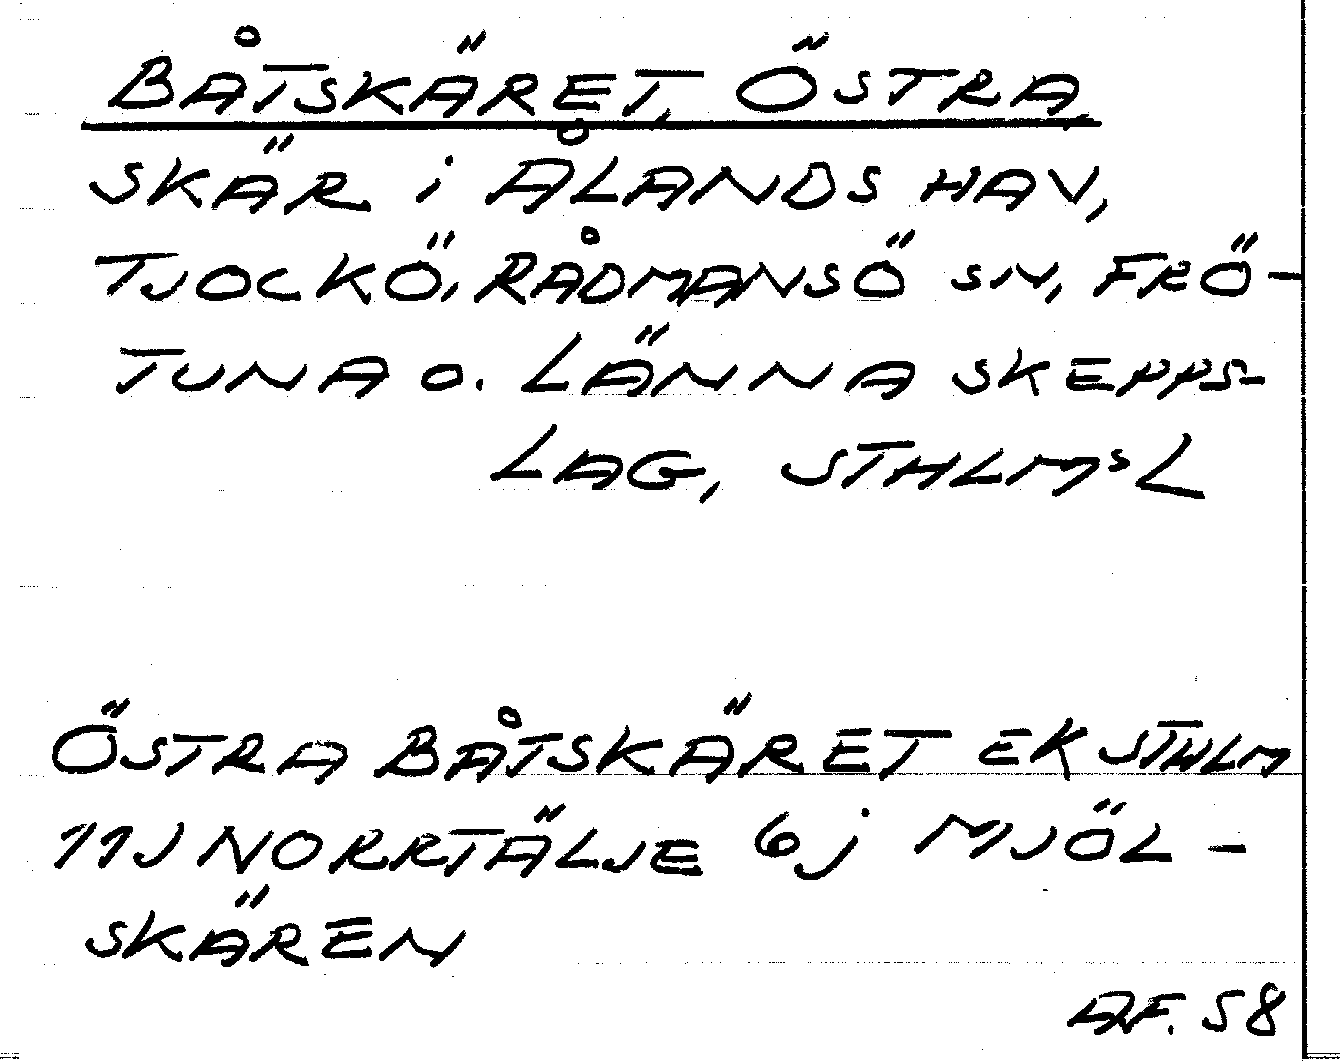 BÅTSKÄRET, ÖSTRA
SKÄR i ÅLANDS HAV,
TJOCKÖ, RÅDMANSÖ SN, FRÖ-
TUNA o. LÄNNA SKEPPS-
LAG, STHLMS L
ÖSTRA BÅTSKÄRET EK STHLM
11J NORRTÄLJE 6j MJÖL-
SKÄREN
AF. 58